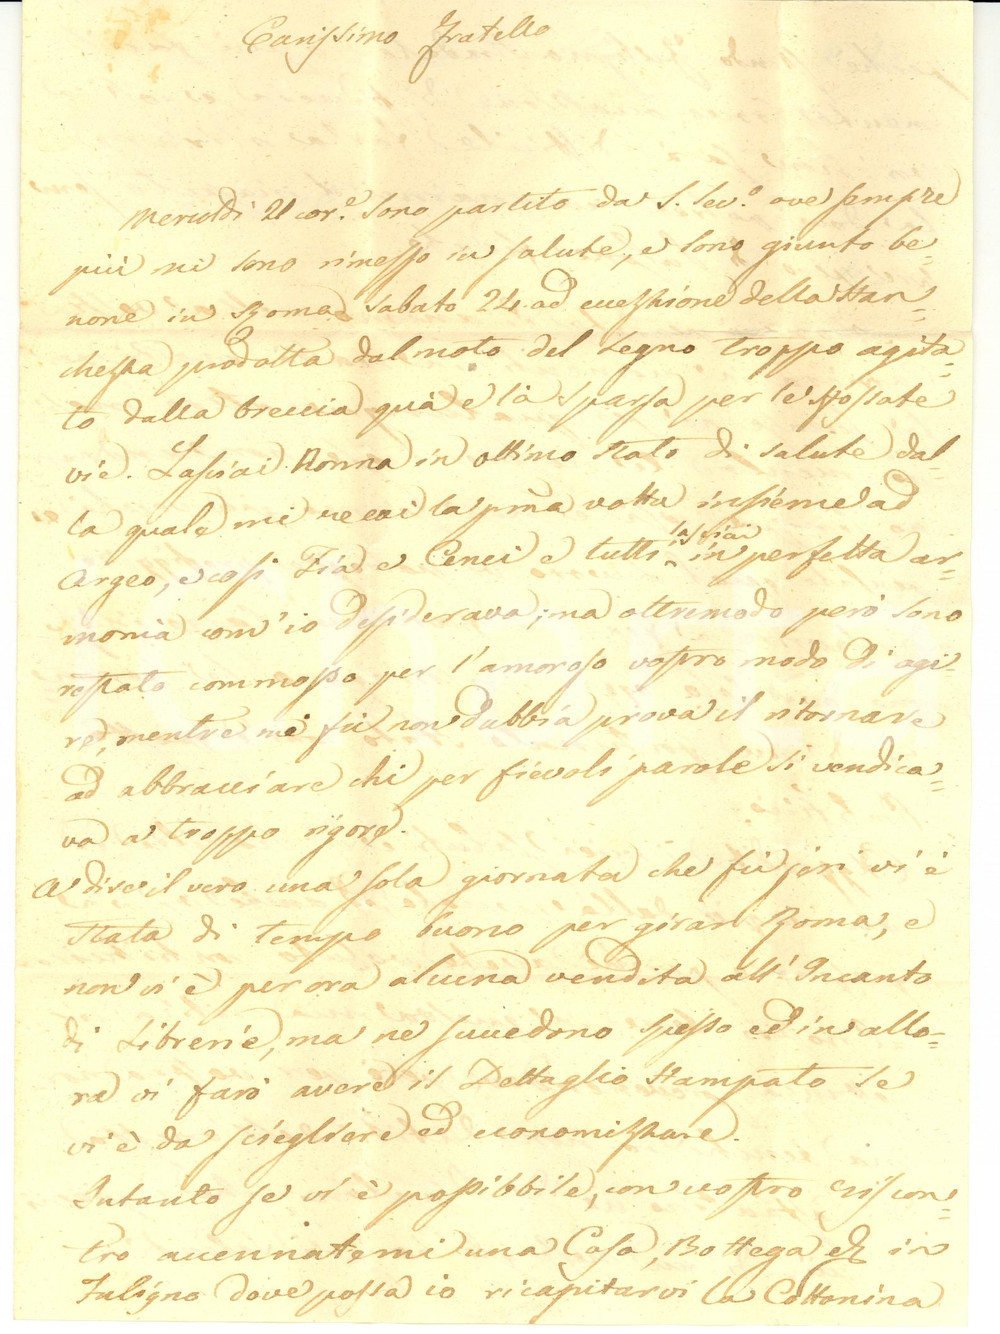 Carissimo Fratello
Mercoldì 21 cor.e sono partito da S. Sev.o ove sempre
più mi sono rimesso in salute, e sono giunto be=
none in Roma Sabato 24. ad eccezzione della stan=
chezza prodotta dal moto del legno troppo agita=
to dalla breccia quà e là sparsa per le spossate
vie. Lasciai Nonna in ottimo stato di salute dal=
la quale mi recai la pma volta insieme ad
Argeo, e così Zia e Cenci e tutti lasciai in perfetta ar=
monia com' io desiderava; ma oltremodo però sono
restato commosso per l' amoroso vostro modo di agi=
re, mentre me fù non dubbia prova il ritornare
ad abbracciare chi per fievoli parole si vendica=
va a troppo rigore.
A dire il vero una sola giornata che fù jeri vi è
stata di tempo buono per girar Roma, e
non vi è per ora alcuna vendita all' Incanto
di Librerie, ma ne succedono spesso ed in allo=
ra vi farò avere il Dettaglio stampato se
vi è da scegliere ed economizzare.
Intanto se vi è possibbile, con vostro riscon=
tro accennatemi una Casa, Bottega &c in
Fuligno dove possa io ricapitarvi la Cottonina